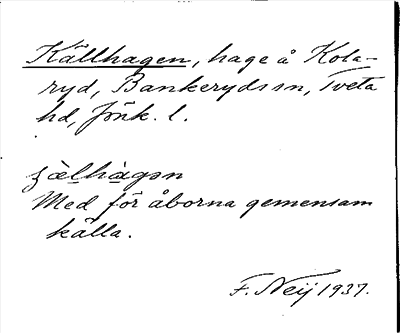 Källhagen, hage å Kola-
ryd, Bankeryds sn, Tveta
hd, Jönk. l.
ʒälhàgən
Med för åborna gemensam
källa.
F. Neij 1937.